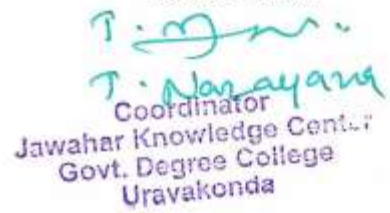 T. Narayana
Coordinator
Jawahar Knowledge Center
Govt. Degree College
Uravakonda